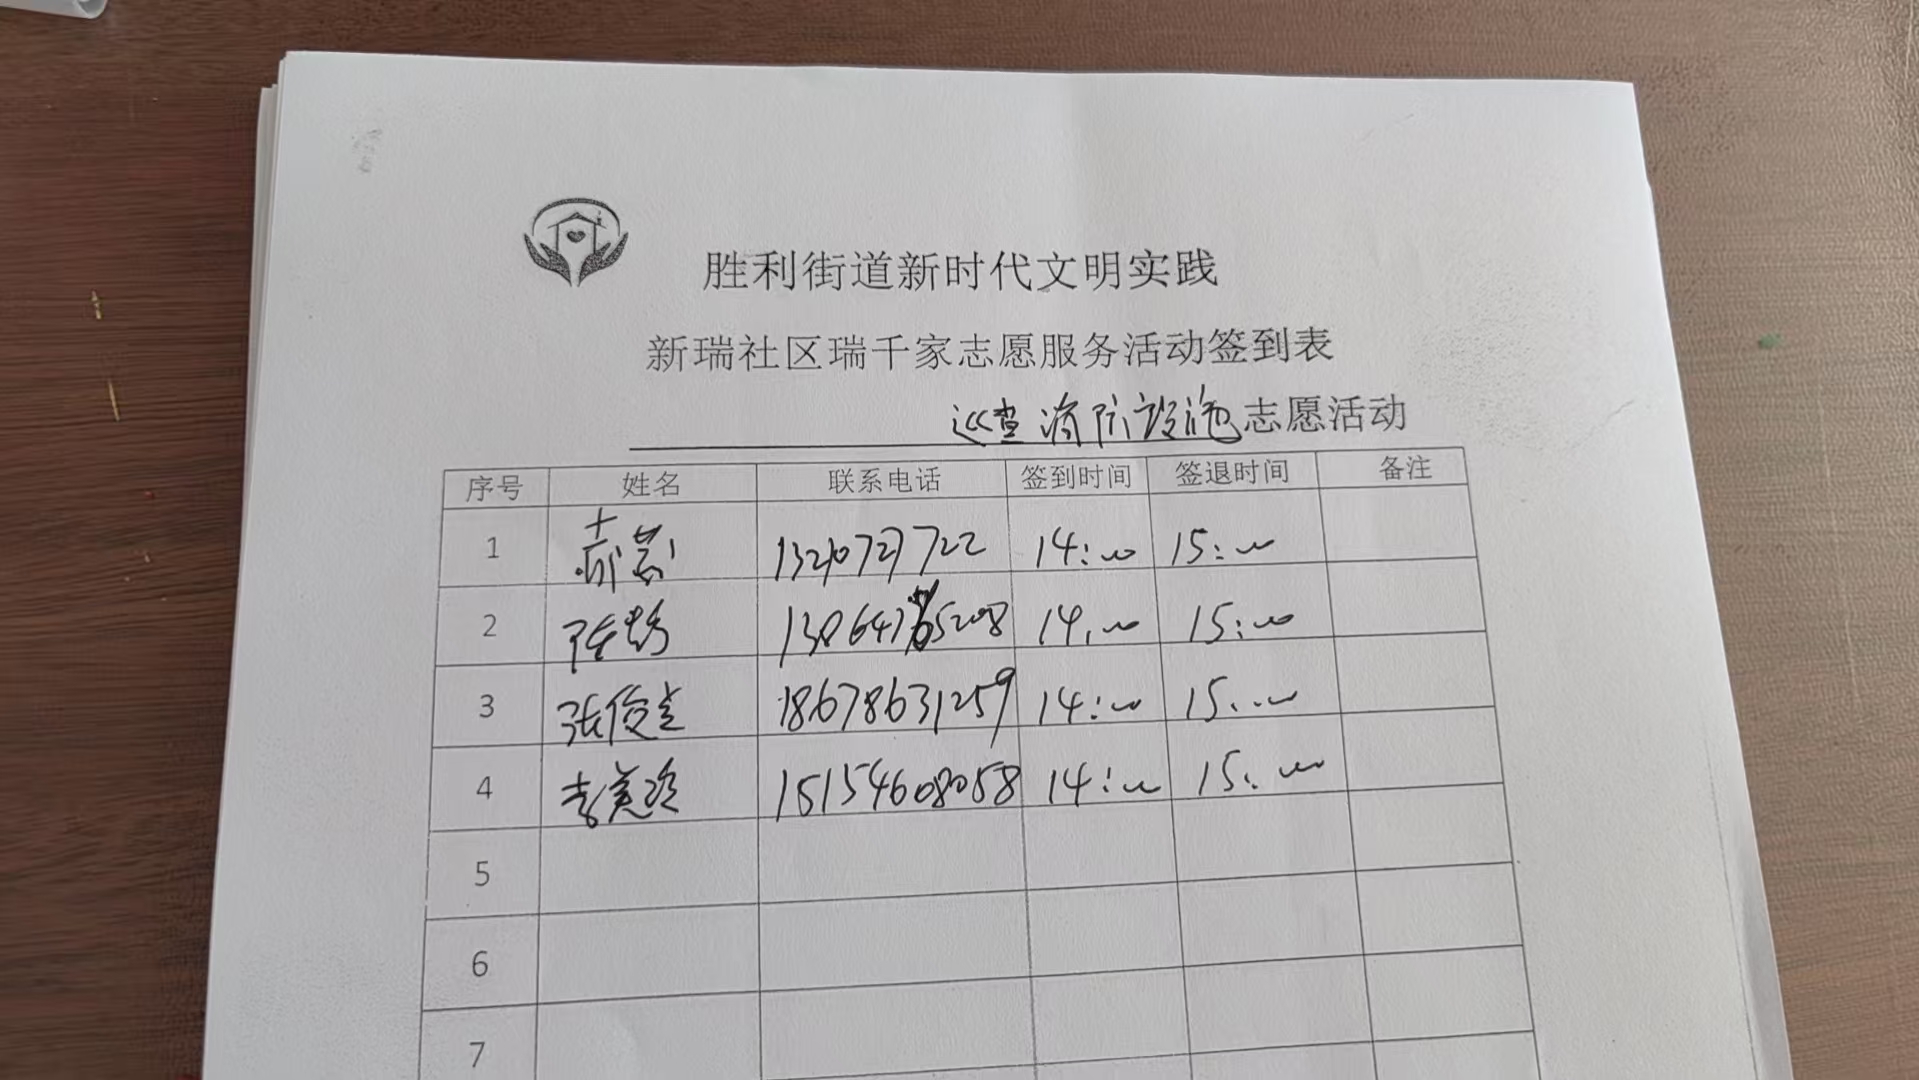 胜利街道新时代文明实践
新瑞社区瑞千家志愿服务活动签到表
巡查消防设施志愿活动
序号 姓名 联系电话 签到时间 签退时间 备注
1 14:00 15:00
2 14:00 15:00
3 张俊芝 18678631259 14:00 15:00
4 李美玲 15154608058 14:00 15:00
5
6
7